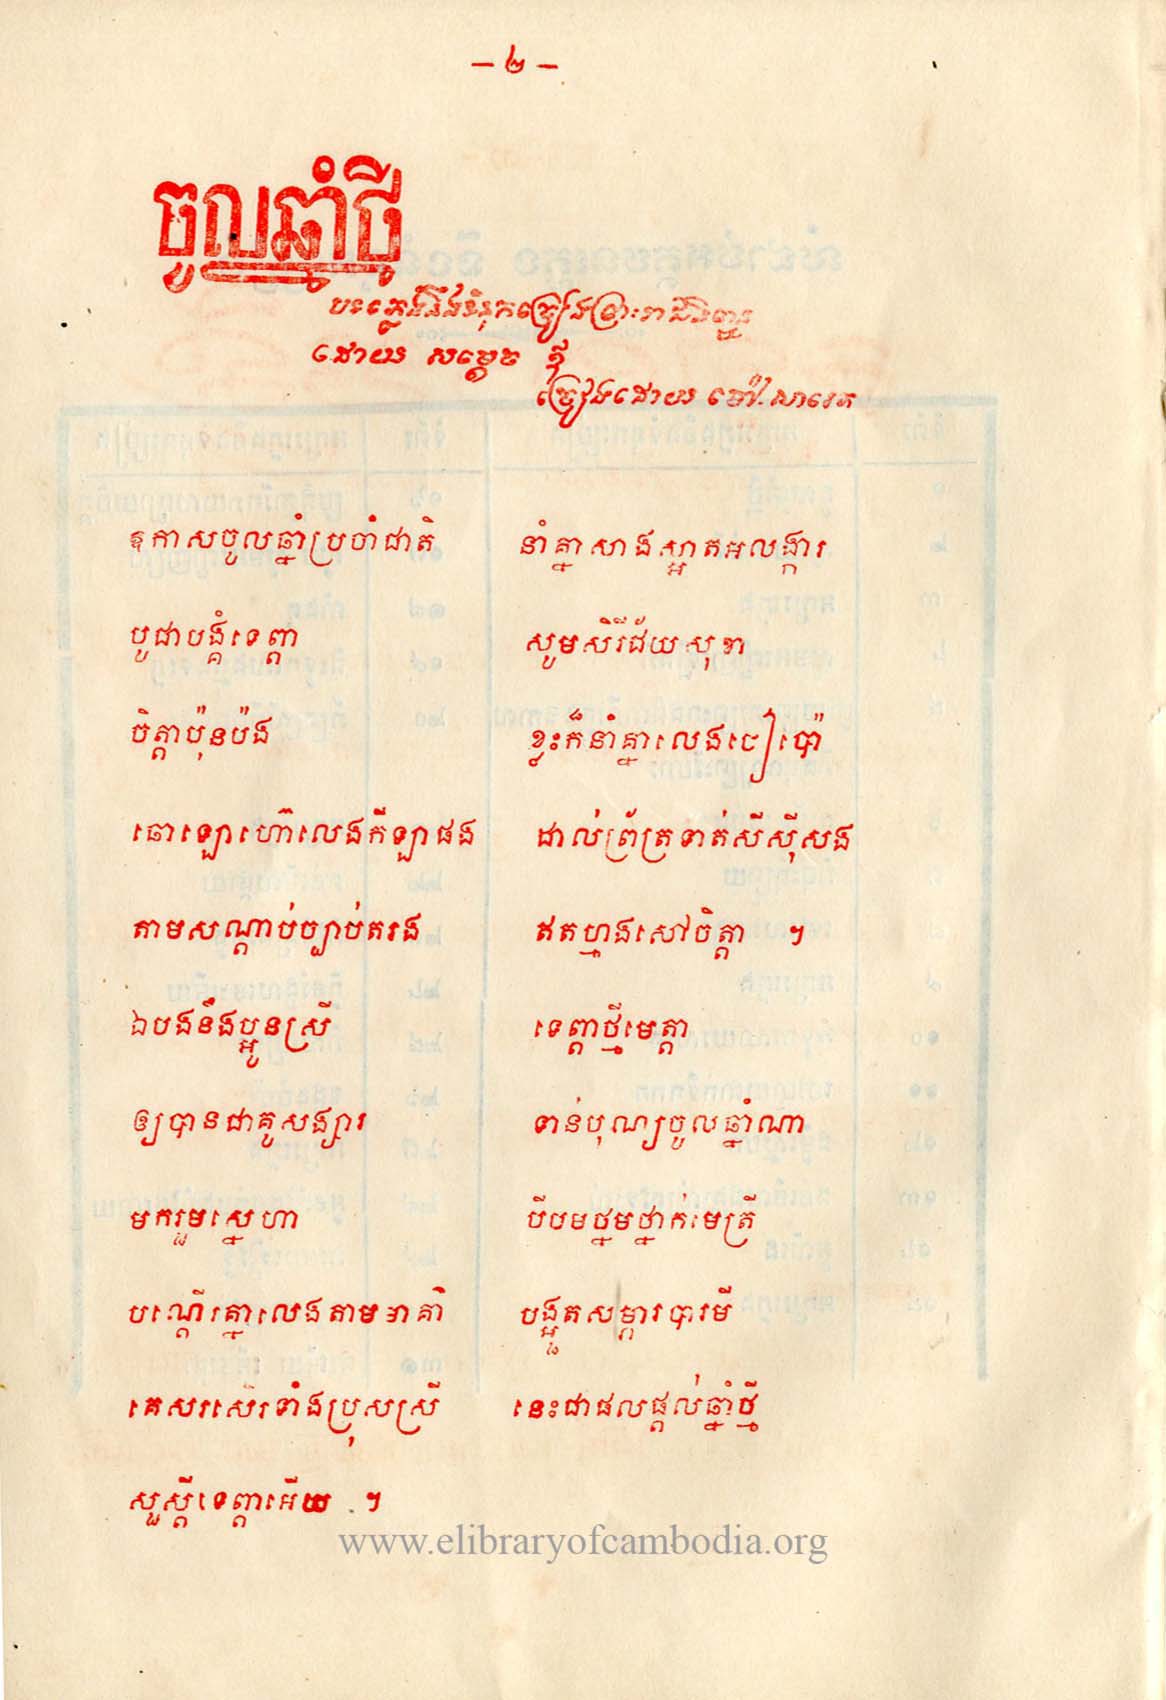 - ២ -
ចូលឆ្នាំថ្មី
បទភ្លេងនឹងទំនុកច្រៀងព្រះរាជនិពន្ធ
ដោយ សម្ដេច ឪ
ច្រៀងដោយ ចៅ សារេត
ឱកាសចូលឆ្នាំប្រចាំជាតិ នាំគ្នាសាងស្អាតអលង្ការ
បូជាបង្គំទេព្ដា សូមសិរីជ័យសុខា
ចិត្តាប៉ុនប៉ង ខ្លះក៏នាំគ្នាលេងចៀប៉ោ
ធោឡោហ៊ោលេងកីឡាផង ដាល់ព្រ័ត្រទាត់សីស៊ីសង
តាមសណ្ដាប់ច្បាប់គរង ឥតហ្មងសៅចិត្តា ។
ឯបងនឹងប្អូនស្រី ទេព្ដាថ្មីមេត្តា
ឲ្យបានជាគូសង្សារ ទាន់បុណ្យចូលឆ្នាំណា
មករួមស្នេហា បីបមថ្នមថ្នាក់មេត្រី
បណ្ដើរគ្នាលេងតាមអាគារ បង្អួតសម្ភារបារមី
គេសរសើរទាំងប្រុសស្រី នេះជាផលផ្ដល់ឆ្នាំថ្មី
សួស្ដីទេព្ដាអើយ ។
www.elibraryofcambodia.org